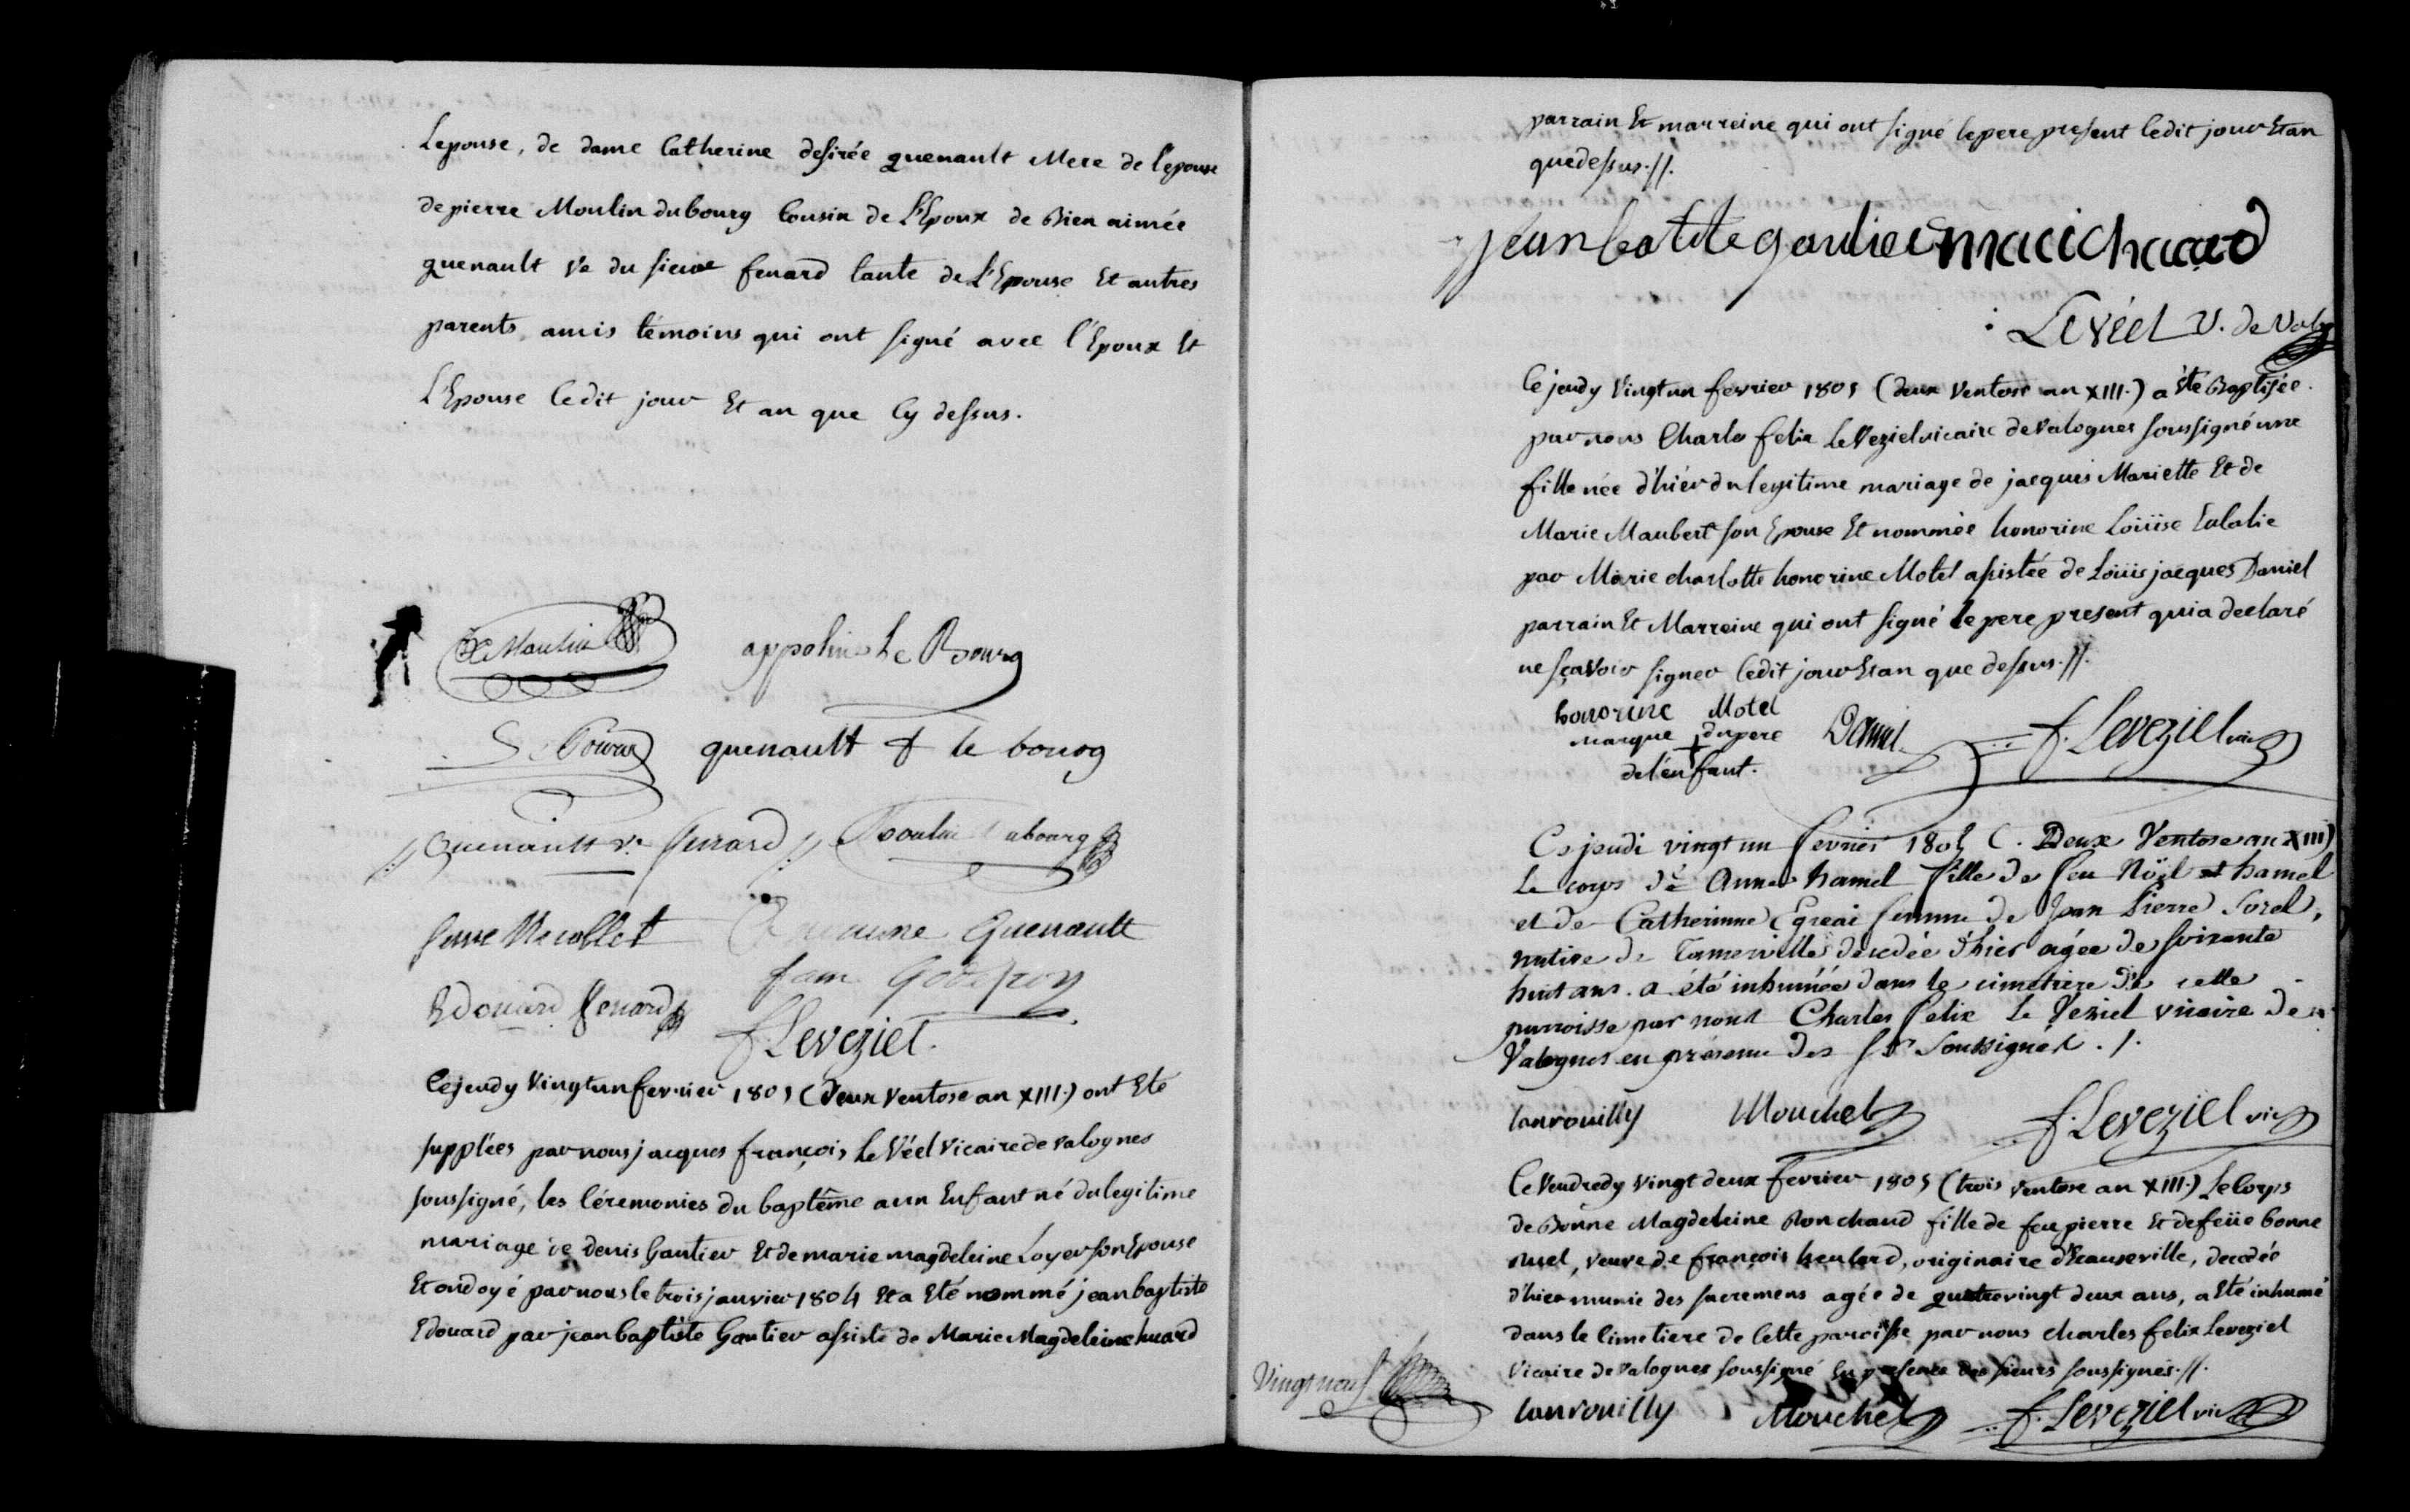 Lepouse, de dame Catherine desirée quenault Mere de l'epouse
de pierre Moulin dubourg Cousin de L'Epoux de Bien aimée
quenault Ve du sieur fenard tante de L'Epouse Et autres
parents, amis témoins qui ont signé avec l'Epoux Et
L'Epouse Ledit jour Et an que Cy dessus.
Moulin appoline Le Bourg
quenault f le bourg
Quenault ve fenard Moulin dubourg
Quenault
Edouard fenard fam Godefroy
f Leveziel.
Le jeudy Vingt un fevrier 1805 (deux ventose an XIII.) ont Eté
supplées par nous jacques françois Le Véel Vicaire de valognes
soussigné, les Céremonies du baptême a un Enfant né du legitime
mariage de denis Gautier Et de marie magdeleine Loyer son Epouse
Et ondoyé par nous le trois janvier 1804 Et a Eté nommé jean baptiste
Edouard par jean baptiste Gautier assisté de Marie Magdeleine huard
parrain Et marreine qui ont signé le pere present ledit jour Et an
que dessus.//.
jean batite gautier
Levéel V. de Val
Le jeudy Vingt un fevrier 1805 (deux Ventose an XIII.) a été Baptisée
par nous Charles felix Leveziel vicaire de valognes soussigné une
fille née d'hier du legitime mariage de jacques Mariette Et de
Marie Maubert son Epouse Et nommée honorine Loüise Eulalie
par Marie charlotte honorine Motel assistée de Loüis jacques Daniel
parrain Et Marreine qui ont signé le pere present qui a declaré
ne sçavoir signer Ledit jour Et an que dessus.//.
honorine Motel
marque + du pere Daniel f. Leveziel vic
de l'enfant.
Ce jeudi vingt un fevrier 1805 (Deux Ventose an XIII)
Le corps de Anne hamel fille de feu Nöel hamel
et de Catherinne femme de Jean Pierre Sorel,
native de Tamerville decedée d'hier agée de soixante
huit ans. a été inhumée dans le cimetiere de cette
parroisse par nous Charles felix Le Veziel vicaire de
Valognes en présence des Srs Soussignés ./.
Lanrouilly Mouchel f. Leveziel vic
Le Vendredy Vingt deux fevrier 1805 (trois ventose an XIII.) Le Corps
de Bonne Magdeleine Ronchaud fille de feu pierre Et de feüe bonne
ruel, veuve de françois heulard, originaire d'Eauseville, decedée
d'hier munie des sacremens agée de quatrevingt deux ans, a Eté inhumé
dans le Cimetiere de Cette paroisse par nous charles felix Leveziel
Vicaire de valognes soussigné En presence des sieurs soussignés.//.
Vingt neuf
Lanrouilly Mouchel f. Leveziel vic